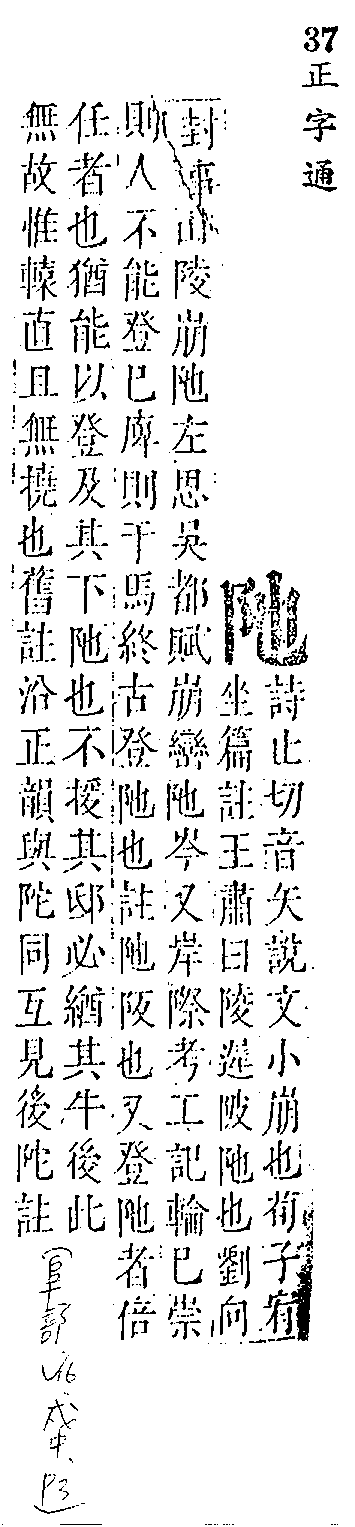 37
正字通
阤
詩止切音矢說文小崩也荀子宥
坐篇註王肅曰陵遲陂阤也劉向
封事山陵崩阤左思吳都賦崩巒阤岑又岸際考工記輪已崇
則人不能登已庳則于馬終古登阤也註阤阪也又登阤者倍
任者也猶能以登及其下阤也不援其邸必緧其牛後此
無故惟轅直且無撓也舊註沿正韻與陀同互見後阤註
阜部
戌中
P3